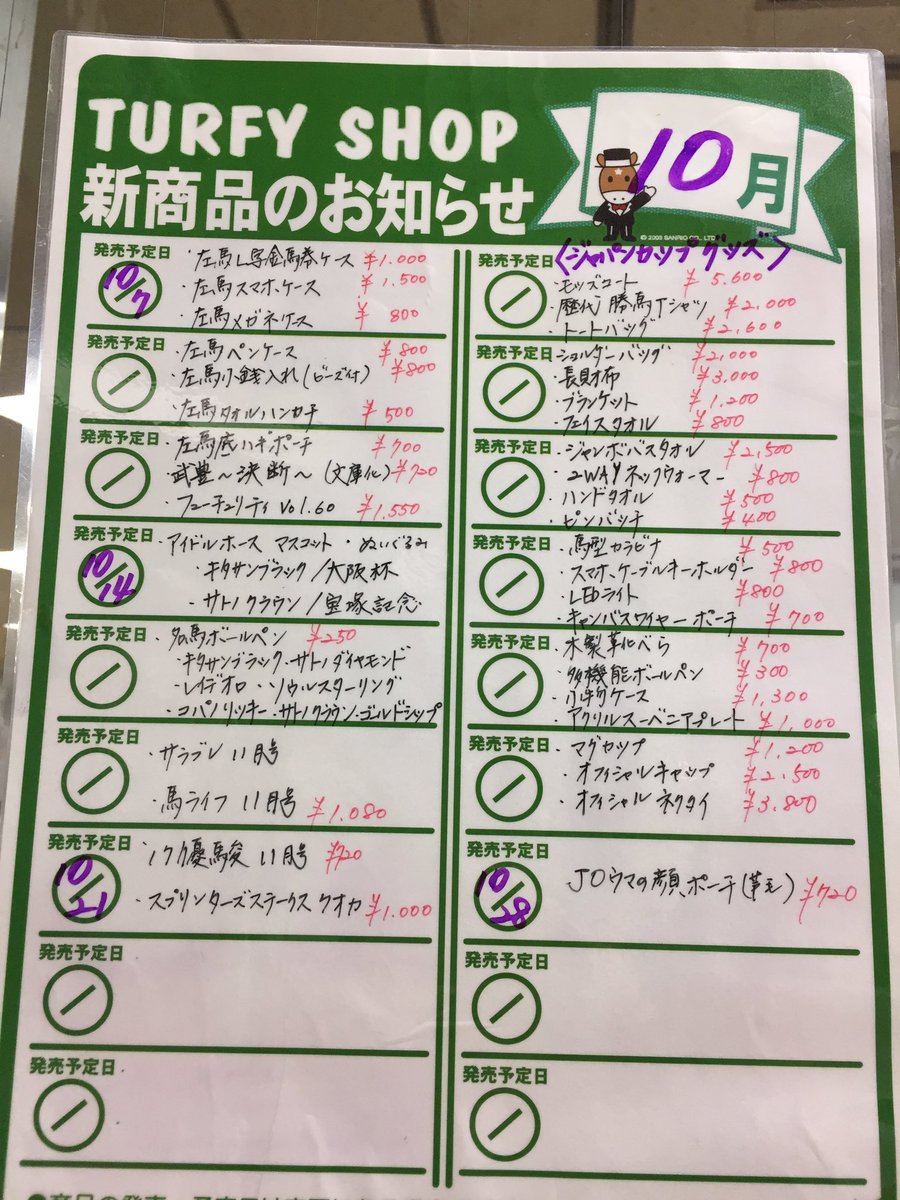 TURFY SHOP
新商品のお知らせ
10月
© 2003 SANRIO CO., LTD.
発売予定日
10/7
・左馬L字金馬券ケース ¥1.000
・左馬スマホケース ¥1.500
・左馬メガネケース ¥800
発売予定日
・左馬ペンケース ¥800
・左馬小銭入れ(ビーズ付) ¥800
・左馬タオルハンカチ ¥500
発売予定日
・左馬底ハギポーチ ¥700
・武豊〜決断〜(文庫化) ¥720
・フューチュリティ Vol.60 ¥1,550
発売予定日
10/14
・アイドルホース マスコット・ぬいぐるみ
・キタサンブラック/大阪杯
・サトノクラウン/宝塚記念
発売予定日
・名馬ボールペン ¥250
・キタサンブラック・サトノダイヤモンド
・レイデオロ・ソウルスターリング
・コパノリッキー・サトノクラウン・ゴールドシップ
発売予定日
・サラブレ 11月号
・馬ライフ 11月号 ¥1.080
発売予定日
10/21
優駿 11月号 ¥720
・スプリンターズステークス クオカ ¥1.000
発売予定日
発売予定日
発売予定日
〈ジャパンカップグッズ〉
・モッズコート ¥5.600
・歴代勝馬Tシャツ ¥2,000
・トートバッグ ¥2,600
発売予定日
・ショルダーバッグ ¥2,000
・長財布 ¥3,000
・ブランケット ¥1,200
・フェイスタオル ¥800
発売予定日
・ジャンボバスタオル ¥2,500
・2WAYネックウォーマー ¥800
・ハンドタオル ¥500
・ピンバッチ ¥400
発売予定日
・馬型カラビナ ¥500
・スマホケーブルキーホルダー ¥800
・LEDライト ¥800
・キャンバスワイヤーポーチ ¥700
発売予定日
・木製靴べら ¥700
・多機能ボールペン ¥300
・小物ケース ¥1,300
・アクリルスーベニアプレート ¥1,000
発売予定日
・マグカップ ¥1,200
・オフィシャルキャップ ¥2,500
・オフィシャルネクタイ ¥3.800
発売予定日
10/28
JOウマの顔ポーチ(革モ) ¥720
発売予定日
発売予定日